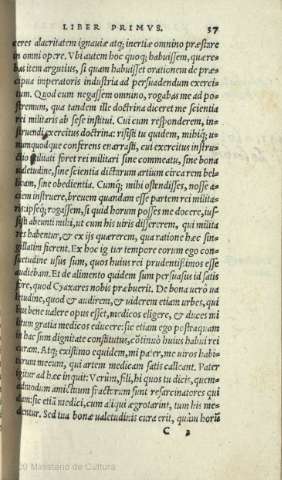 LIBER PRIMVS. 37
ceres alacritatem ignauiæ atq; inertiæ omnino præstare
in omni opere. Vbi autem hoc quoq; habuissem, quære
bas item argutius, si quam habuisset orationem de præ
imperatoris industria ad persuadendum exerci
tum. Quod cum negassem omnino, rogabas me ad po
stremum, qua tandem ille doctrina diceret me scientia
rei militaris ab sese institui. Cui cum responderem, in
struendi exercitus doctrina: risisti tu quidem, mihiq; u
numquodque conferens enarrasti, cui exercitus instru
foret rei militari sine commeatu, sine bona
ualetudine, sine scientia dictarum artium circa rem bel
licam, sine obedientia. Cumq; mihi ostendisses, nosse a
ciem instruere, breuem quandam esse partem rei milita
rogassem, si quid horum posses me docere, ius
sisti abeunti mihi, ut cum his uiris dissererem, qui milita
res habentur, & ex ijs quærerem, qua ratione hæc sin
gillatim fierent. Ex hoc igitur tempore eorum ego con
suetudine usus sum, quos huius rei prudentissimos esse
audiebam. Et de alimento quidem sum persuasus id satis
fore, quod Cyaxares nobis præbuerit. De bona uero ua
letudine, quod & audirem, & uiderem etiam urbes, qui
bus bene ualere opus esset, medicos eligere, & duces mi
litum gratia medicos educere: sic etiam ego postquam
in hac sum dignitate constitutus, cōtinuò huius habui rei
curam. Atq; existimo equidem, mi pater, me uiros habi
turum mecum, qui artem medicam satis calleant. Pater
igitur ad hæc inquit: Verùm, fili, hi quos tu dicis, quem
admodum amictuum fractorum sunt resarcinatores qui
dam: sic etiā medici, cum aliqui ægrotarint, tum his me
dentur. Sed tua bonæ ualetudinis cura erit, quàm horū
C 3
Ministerio de Cultura